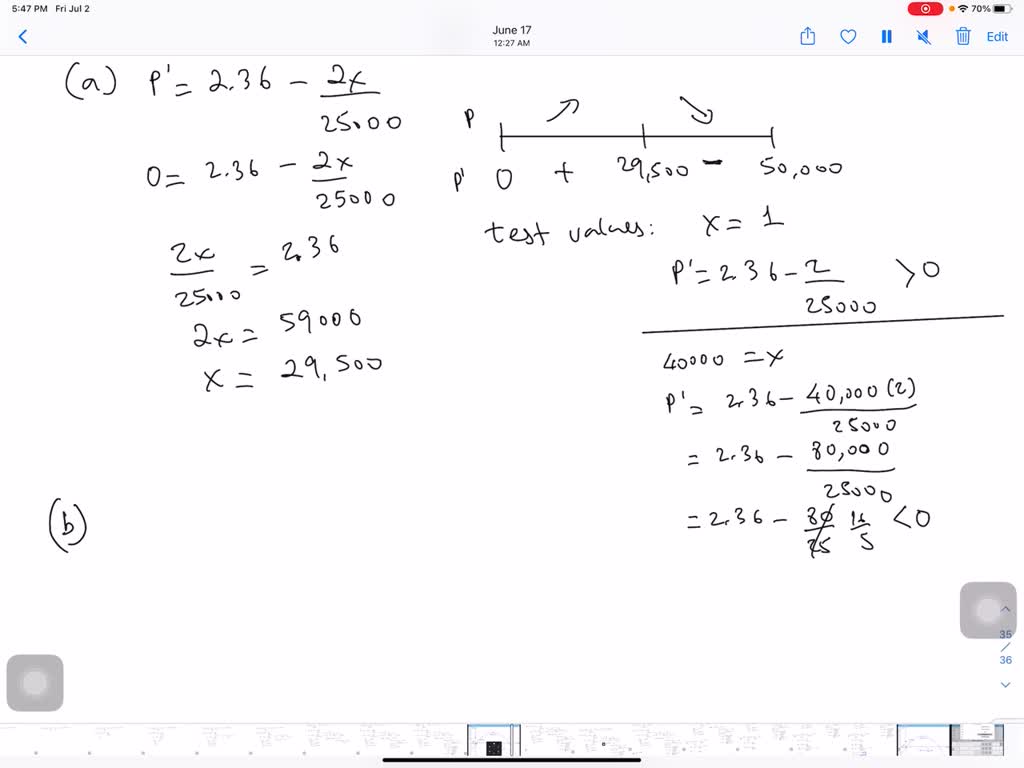 5:47 PM Fri Jul 2
70%
June 17
12:27 AM
Edit
(a) P' = 2.36 - 2x/25000
0 = 2.36 - 2x/25000
2x/25000 = 2.36
2x = 59000
x = 29,500
P
P' 0 + 29,500 - 50,000
test values: x = 1
P' = 2.36 - 2/25000 > 0
40000 = x
P' = 2.36 - 40,000(2)/25000
= 2.36 - 80,000/25000
= 2.36 - 80/25 16/5 < 0
(b)
35
/
36